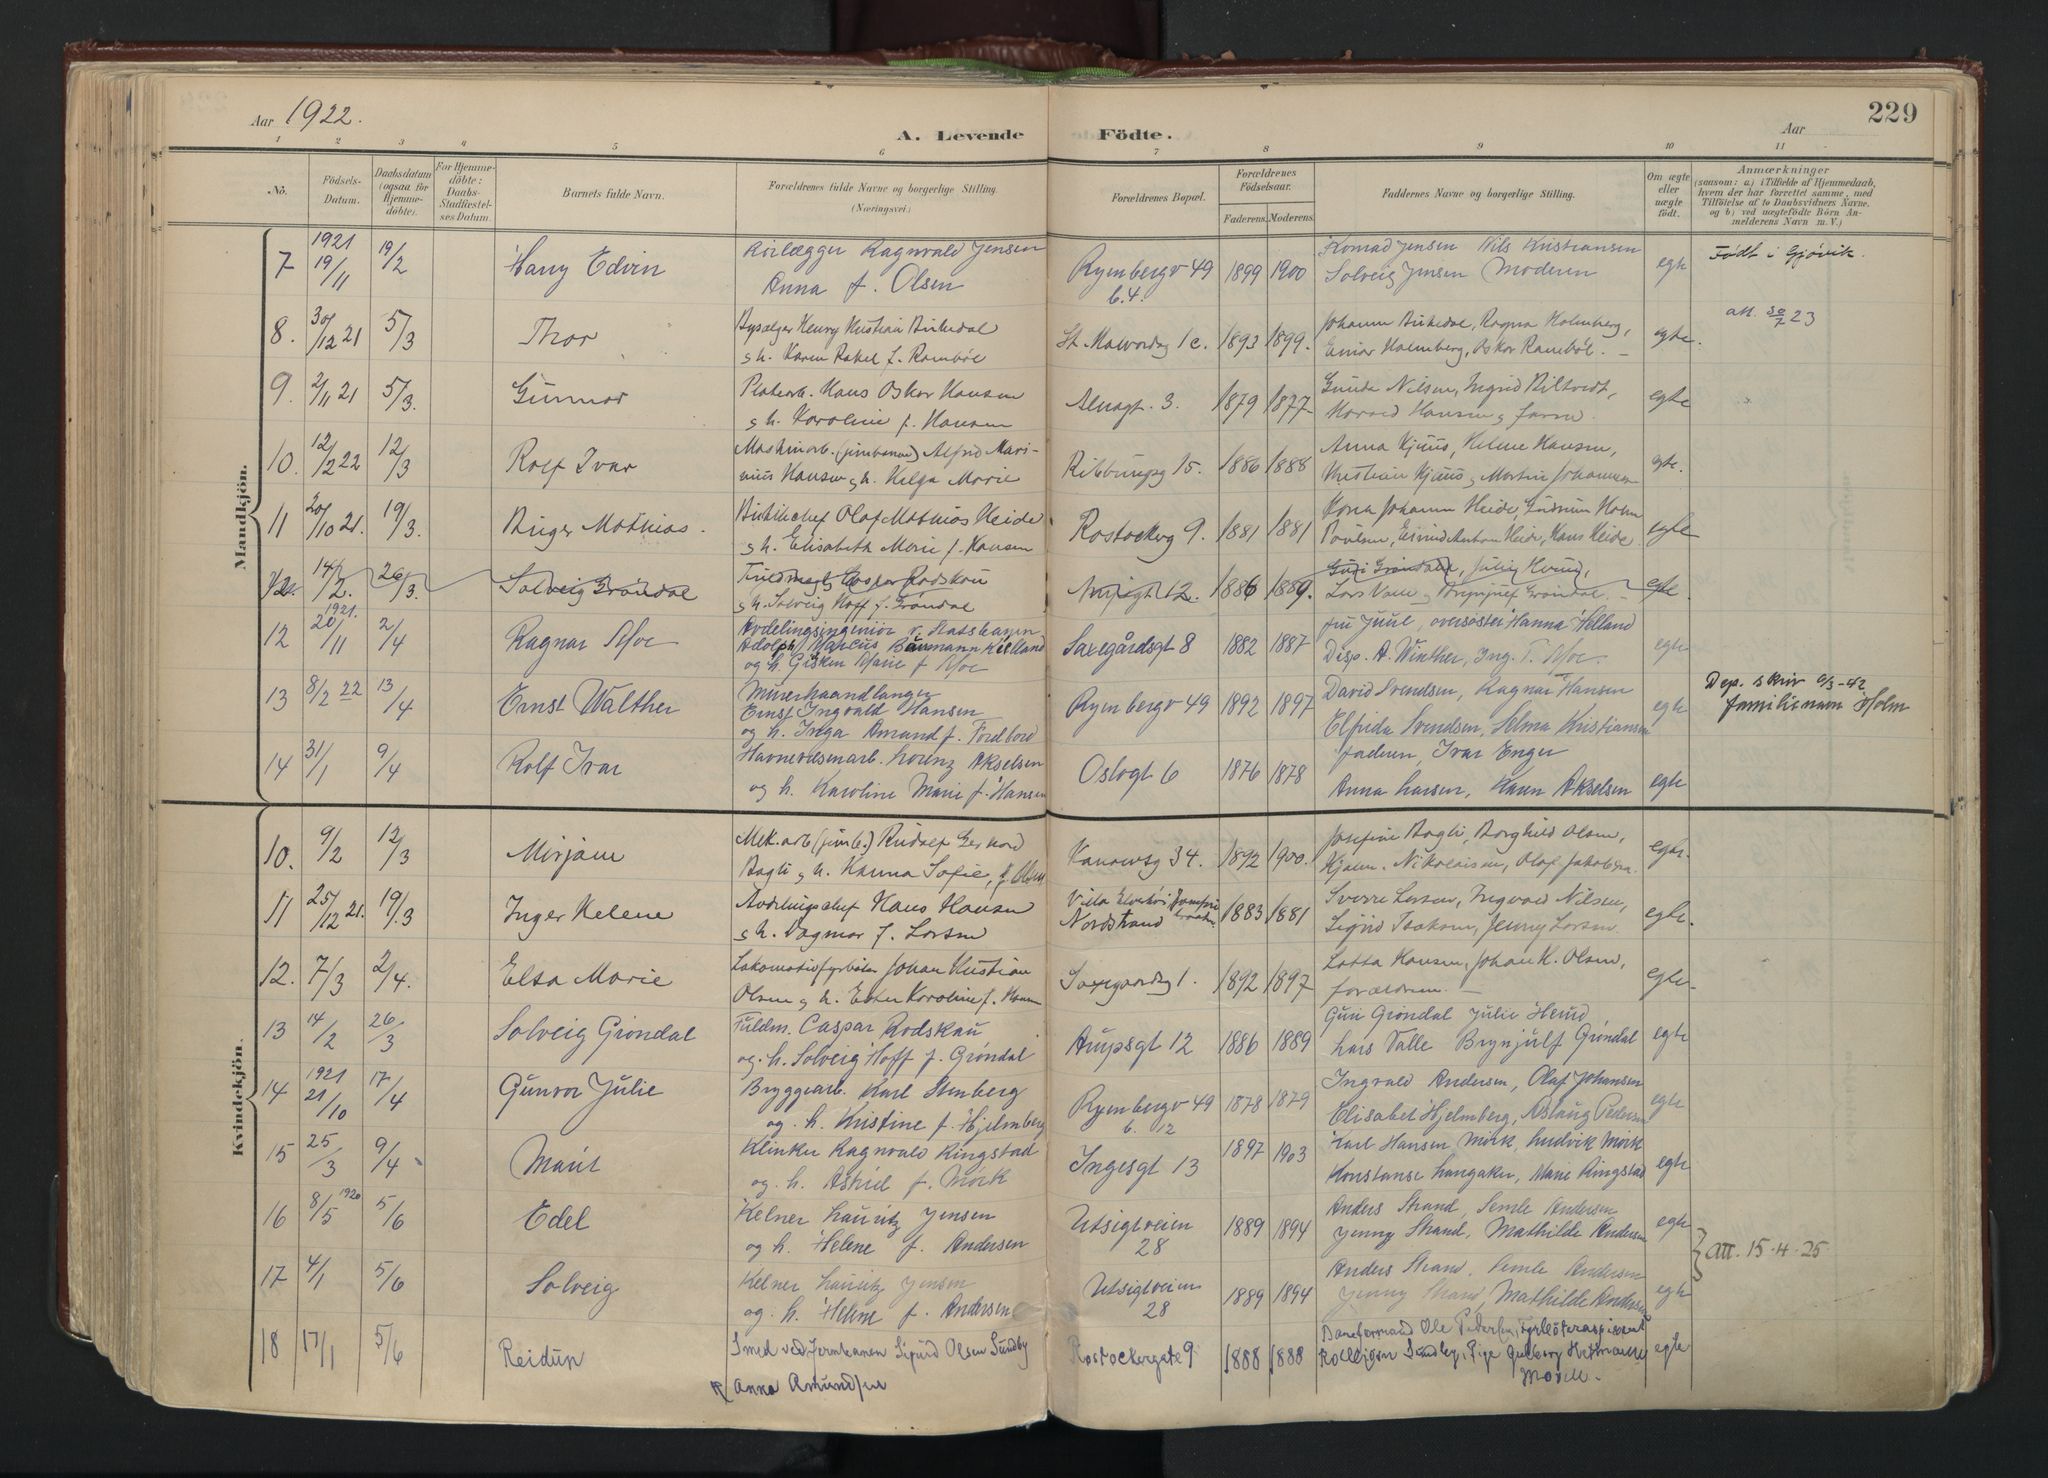 Aar 1922.
A. Levende Födte.
Aar
229
1 2 3 4 5 6 7 8 9 10 11
No.
Födsels-
Datum.
Daabsdatum
(ogsaa for
Hjemme-
döbte).
For Hjemme-
döbte:
Daabs-
Stadfæstel-
ses Datum.
Barnets fulde Navn.
Forældrenes fulde Navne og borgerlige Stilling.
(Næringsvei.)
Forældrenes Bopæl.
Forældrenes
Födselsaar.
Faderens. Moderens.
Faddernes Navne og borgerlige Stilling.
Om ægte
eller
uægte
født.
Anmærkninger
(saasom: a) i Tilfælde af Hjemmedaab,
hvem der har forrettet samme, med
Tilföielse af to Daabsvidners Navne,
og b) ved uægtefödte Börn An-
melderens Navn m. V.)
Mandkjön.
7 1921 19/11 19/2 Harry Edvin
Rørlægger Ragnvald Jensen
Anna f. Olsen
Rymbergv 49
b. 4.
1899 1900
Konrad Jensen Nils Kristiansen
Solveig Jensen Moderen
egte
Födt i Gjøvik.
8. 30/12 21 5/3 Thor
Henry Kristian Birkedal
g h. Karen Rakel f. Ramböl
1 c. 1893 1899.
Johanne Birkedal, Ragna Holmberg,
Einar Holmberg, Oskar Ramböl.
egte.
att. 30/7 23
9. 2/11 21 5/3. Gunnar
Hans Oskar Hansen
g h. Karoline f. Hansen
Almagt. 3. 1879 1877
Gunda Nilsen, Ingrid
Harald Hansen g faren.
egte
10. 12/2 22 12/3 Rolf Ivar
Maskinarb. (jernbanen) Alfred Mari-
nius Hansen g h. Helga Marie
15. 1886 1888
Anna Kjuus, Helene Hansen,
Kristian Kjuus g Martin Johannesen
egte.
11 20/10 21. 19/3. Birger Mathias.
Olaf Mathias Heide
g h. Elisabeth Marie f. Hansen
Rostockerg 9. 1881 1881
Johanne Heide, Gudrun Holm
Poulsen, Eivind Heide, Hans Heide
egte
12. 14/2. 26/3. Solveig Gröndal
Fuldmægt. Casper Rodskau
g h. Solveig Hoff f. Gröndal
Arupsgt 12. 1886 1889.
Guri Gröndal, Julie
Lars Valle g Brynjulf Gröndal
egte
12 1921. 20/11 2/4 Ragnar Moe
Avdelingsingeniør v. Statsbanen
Adolph Marcus Baumann Kielland
og h. Gisken Marie f. Moe
Saxegårdsgt 8 1882 1887
fru Juul, oversøster Hanna Kielland
Disp. A. Winther, Ing. T. Moe.
egte
13 8/2 22 13/4 Ernst Walther
Murerhaandlanger
Ernst Ingvald Hansen
og h. Inga Amand f.
Rymbergv 49 1892 1897
David Svendsen, Ragnar Hansen
Elfrida Svendsen, Selma Kristiansen
egte
Dep. skriv 6/3-42
familienavn Holm
14 31/1 9/4 Rolf Ivar
Havnevæsenarb. Lorenz Akselsen
og h. Karoline Marie f. Hansen
Oslogt 6 1876 1878
faderen, Ivar Enger
Anna Larsen, Karen Akselsen
egte
Kvindekjön.
10. 9/2 12/3 Mirjam
Mek. arb (jernb.) Rudolf
Bagli g h. Hanna Sofie, f. Olsen
34. 1892 1900.
Josefine Bagli, Borghild Olsen,
Hjalm. Nikolaisen, Olaf Jakobsen.
egte.
11 25/12 21. 19/3. Inger Helene
Avdelingschef Hans Hansen
g h. Dagmar f. Larsen
Villa
Nordstrand
1883 1881
Sverre Larsen, Ingvald Nilsen,
Sigrid Isaksen, Jenny Larsen.
egte.
12. 7/3 2/4. Elsa Marie
Lokomotivfyrbøter Johan Kristian
Olsen g h. Ester Karoline f. Hansen
Saxegaardsg 1. 1892 1897
Lotta Hansen, Johan K. Olsen,
forældrene.
egte
13 14/2 26/3 Solveig Gröndal
Fuldm. Caspar Rodskau
og h. Solveig Hoff f. Gröndal
Arupsgt 12 1886 1889
Guri Gröndal Julie
Lars Valle Brynjulf Gröndal
egte
14 1921 21/10 17/4 Gunvor Julie
Bryggearb. Karl Stenberg
og h. Kristine f. Hjelmberg
Rymbergv 49
b. 12
1878 1879
Ingvald Andersen, Olaf Johansen
Elisabet Hjelmberg, Aslaug Pedersen
egte
15 25/3 9/4 Maul
Klinker Ragnvald Ringstad
og h. Astrid f. Mörk
Ingesgt 13 1897 1903
Karl Hansen Mörk, Ludvik Mörk
Konstanse Langaker, Marie Ringstad
egte
16 8/5 1920 5/6 Edel
Kelner Lauritz Jensen
og h. Helene f. Andersen
Utsigtveien
28
1889 1894
Anders Strand, Semle Andersen
Jenny Strand, Mathilde Andersen
egte
att. 15.4.25
17 4/1 5/6 Solveig
Kelner Lauritz Jensen
og h. Helene f. Andersen
Utsigtveien
28
1889 1894
Anders Strand, Semle Andersen
Jenny Strand, Mathilde Andersen
egte
18 17/1 5/6 Reidun
Smed ved Jernbanen Sigurd Olsen Sundby
Anna Amundsen
Rostockergate 9 1888 1888
Baneformand Ole Pedersen, Fyrbøteraspirant
Rolf Sundby, Pige
Moren.
egte